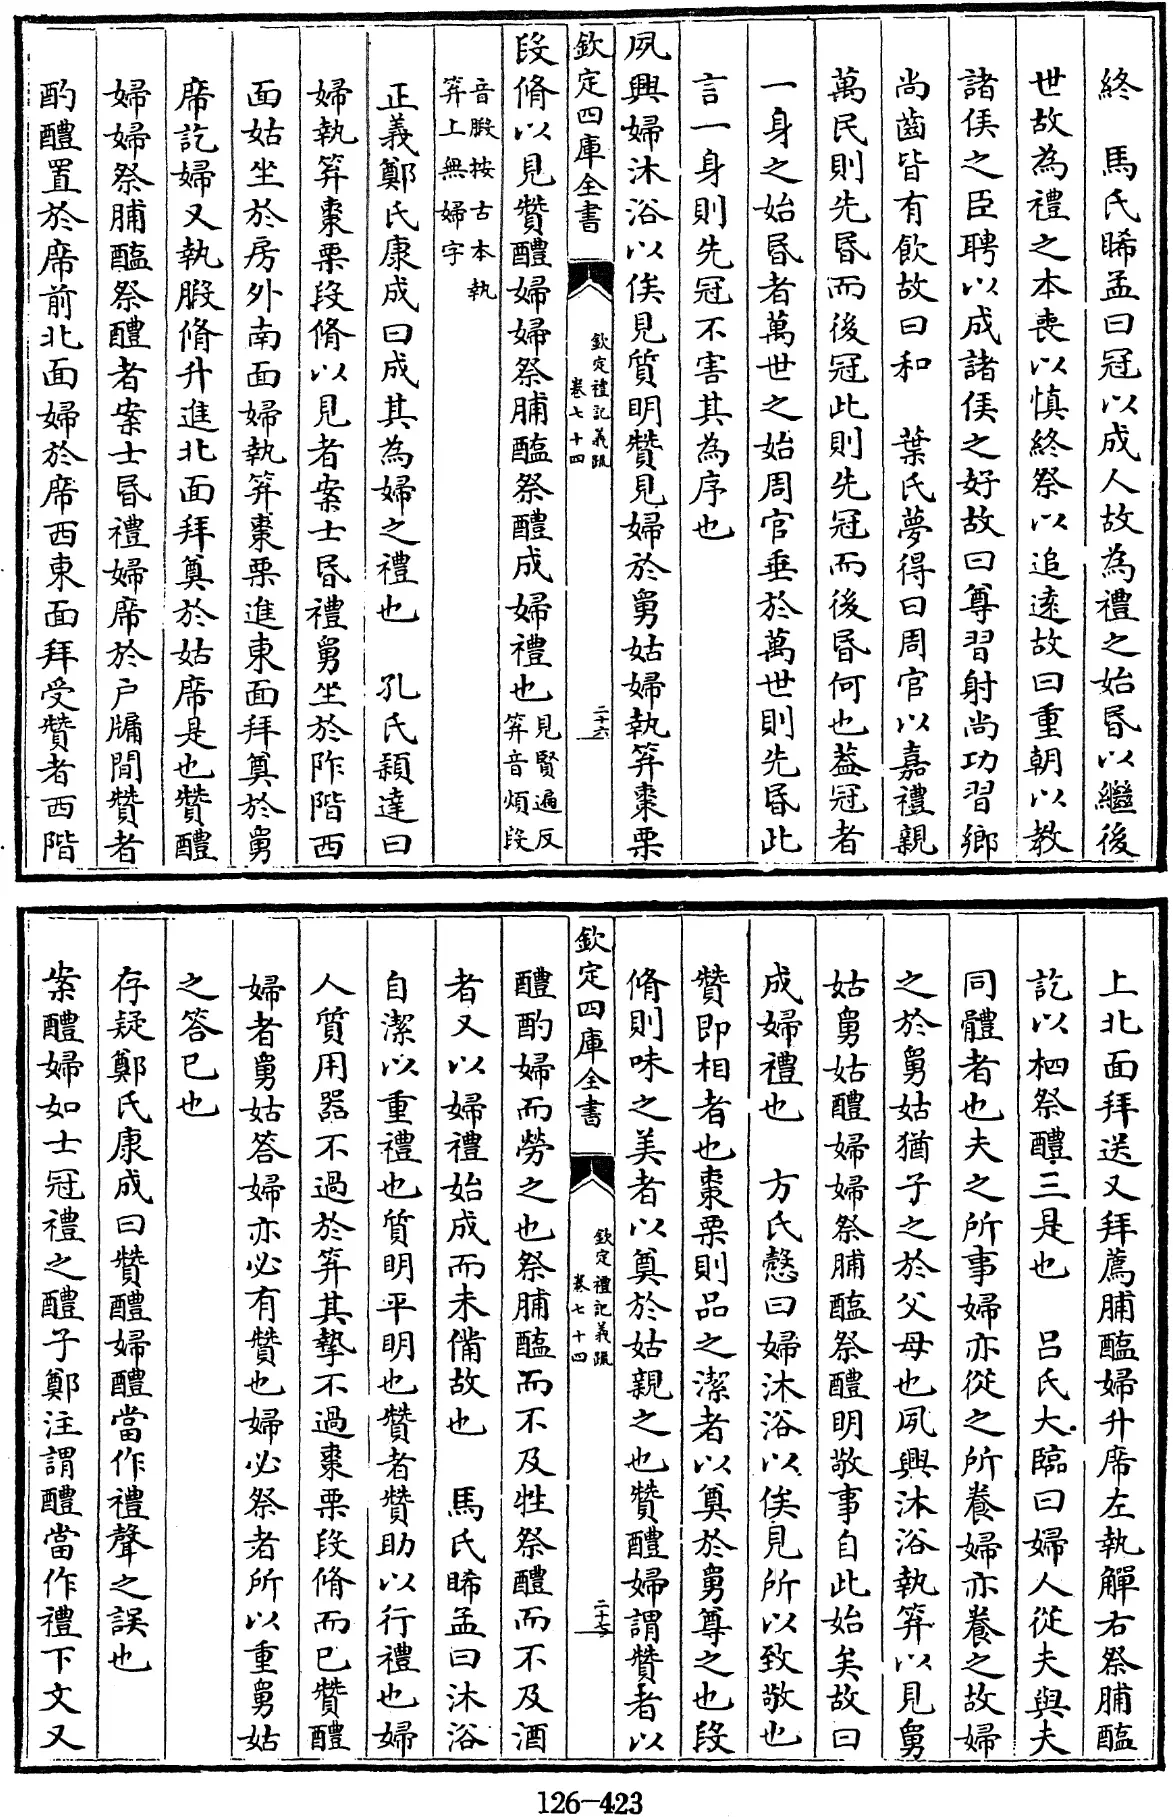 終　馬氏睎孟曰冠以成人故為禮之始昏以繼後
世故為禮之本喪以慎終祭以追逺故曰重朝以教
諸侯之臣聘以成諸侯之好故曰尊習射尚功習鄉
尚齒皆有飲故曰和　葉氏夢得曰周官以嘉禮親
萬民則先昏而後冠此則先冠而後昏何也葢冠者
一身之始昏者萬世之始周官垂於萬世則先昏此
言一身則先冠不害其為序也
夙興婦沐浴以俟見質明贊見婦於舅姑婦執笲棗栗
欽定四庫全書
欽定禮記義疏
卷七十四
二十六
段脩以見贊醴婦婦祭脯醢祭醴成婦禮也見賢遍反
笲音煩段
音腶按古本執
笲上無婦字
正義鄭氏康成曰成其為婦之禮也　孔氏穎達曰
婦執笲棗栗段脩以見者案士昏禮舅坐於阼階西
面姑坐於房外南面婦執笲棗栗進東面拜奠於舅
席訖婦又執腶脩升進北面拜奠於姑席是也贊醴
婦婦祭脯醢祭醴者案士昏禮婦席於户牖間贊者
酌醴置於席前北面婦於席西東面拜受贊者西階
上北面拜送又拜薦脯醢婦升席左執觶右祭脯醢
訖以柶祭醴三是也　吕氏大臨曰婦人從夫與夫
同體者也夫之所事婦亦從之所養婦亦養之故婦
之於舅姑猶子之於父母也夙興沐浴執笲以見舅
姑舅姑醴婦婦祭脯醢祭醴明敬事自此始矣故曰
成婦禮也　方氏慤曰婦沐浴以俟見所以致敬也
贊即相者也棗栗則品之潔者以奠於舅尊之也段
脩則味之美者以奠於姑親之也贊醴婦謂贊者以
欽定四庫全書
欽定禮記義疏
卷七十四
二十七
醴酌婦而勞之也祭脯醢而不及牲祭醴而不及酒
者又以婦禮始成而未備故也　馬氏睎孟曰沐浴
自潔以重禮也質明平明也贊者贊助以行禮也婦
人質用器不過於笲其摯不過棗栗段脩而已贊醴
婦者舅姑答婦亦必有贊也婦必祭者所以重舅姑
之答已也
存疑鄭氏康成曰贊醴婦醴當作禮聲之誤也
案醴婦如士冠禮之醴子鄭注謂醴當作禮下文又
126-423